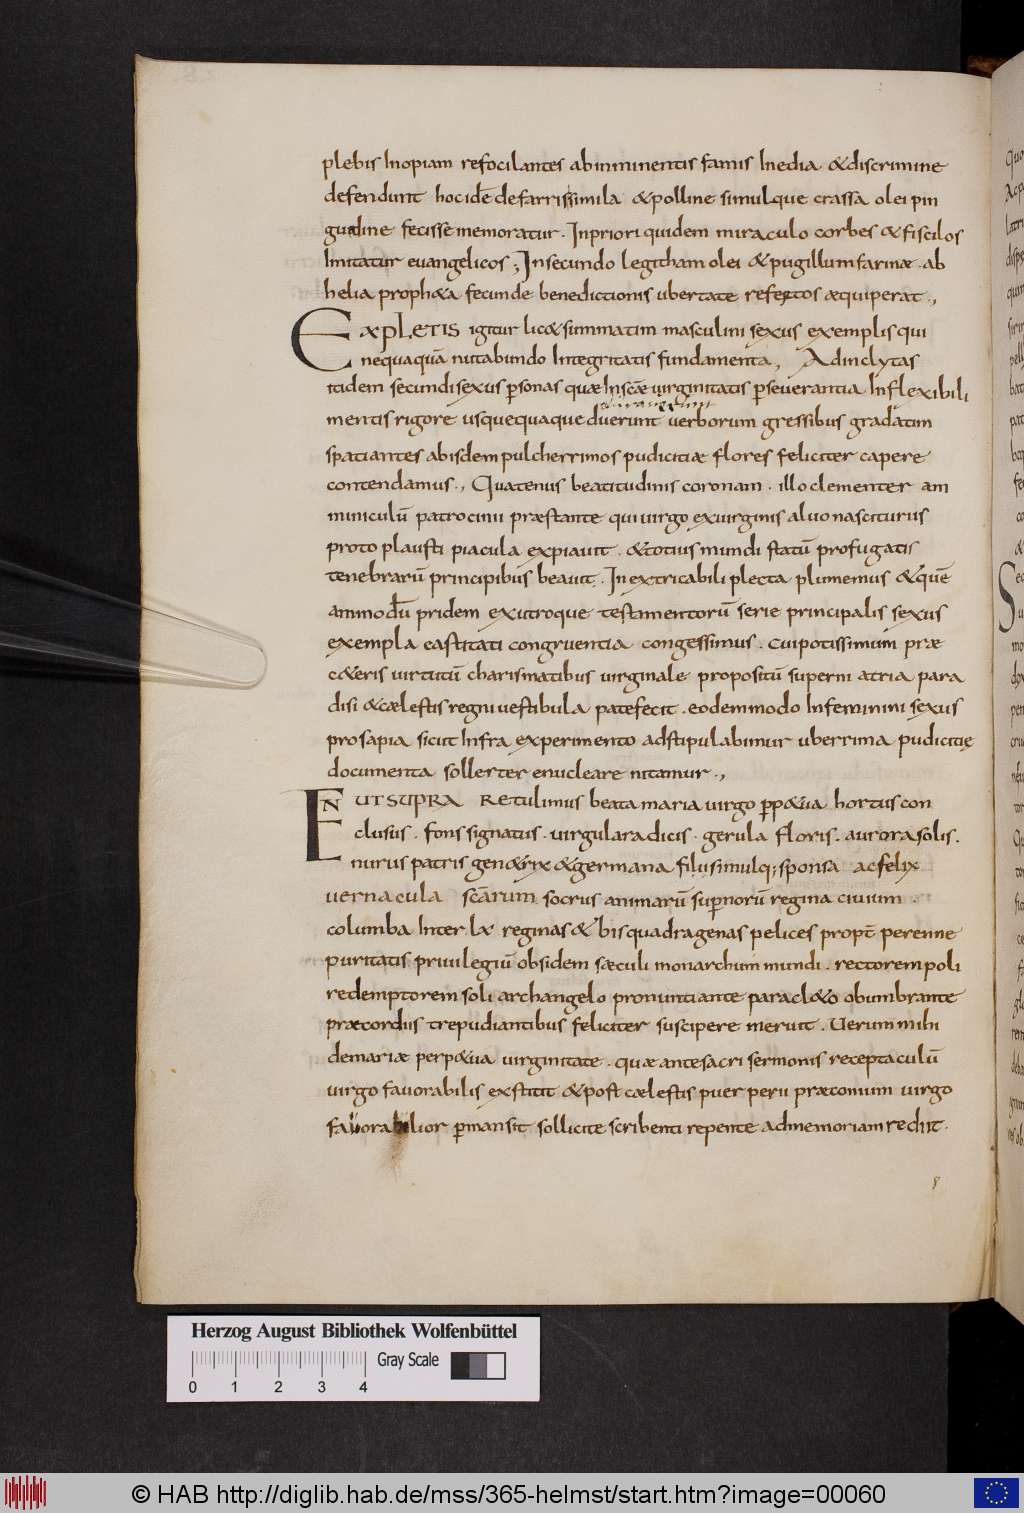 plebis Inopiam refocilantes abinminentis famis Inedia &discrimine
defendunt hocidē defarrissimila &polline simulque crassa olei pin
gudine fecisse memoratur. Inpriori quidem miraculo corbes & fiscilos
Imitatur euangelicos; Insecundo legitham olei & pugillum farinæ. ab
helia proph&a fecunde benedictionis ubertate refertos æquiperat.,
Expletis igitur lic& summatim masculini sexus exemplis qui
nequaquā nutabundo Integritatis fundamenta, Adinclytas
itidem secundi sexus psonas quæ Inscāe uirginitatis pseuerantia Inflexibili
mentis rigore usquequaque duerunt uerborum gressibus gradatim
spatiantes abisdem pulcherrimos pudicitiæ flores feliciter capere
contendamus., Quatenus beatitudinis coronam. illo clementer am
miniculū patrocinii præstante qui uirgo exuirginis aluo nasciturus
proto plausti piacula expiauit. &totius mundi statū profugatis
tenebrarū principibus beauit. Inextricabili plecta plumemus &quē
ammodū pridem exutroque testamentorū serie principalis sexus
exempla castitati congruentia congessimus. cui potissimum præ
c&eris uirtutū charismatibus uirginale propositū superni atria para
disi &cælestis regni uestibula patefecit. eodemmodo Infeminini sexus
prosapia sicut Infra experimento adstipulabimur uberrima pudicitię
documenta sollerter enucleare nitamur.,
EN UT SUPRA Retulimus beata maria uirgo pp&ua hortus con
clusus. fons signatus. uirgula radicis. gerula floris. aurora solis.
nurus patris gen&rix &germana filii simulq; sponsa ac felix
uernacula scārum socrus animarū supnorū regina ciuium
columba Inter lx reginas & bis quadragenas pelices propt̄ perenne
puritatis priuilegiū obsidem sæculi monarchum mundi. rectorem poli
redemptorem soli archangelo pronuntiante paracl&o obumbrante
præcordiis trepudiantibus feliciter suscipere meruit. Uerum mihi
demariæ perp&ua uirginitate. quæ ante sacri sermonis receptaculū
uirgo fauorabilis exstitit &post cælestis puer perii præconium uirgo
fauorabilior pmansit sollicite scribenti repente admemoriam rediit.
Herzog August Bibliothek Wolfenbüttel
Gray Scale
0 1 2 3 4
© HAB http://diglib.hab.de/mss/365-helmst/start.htm?image=00060